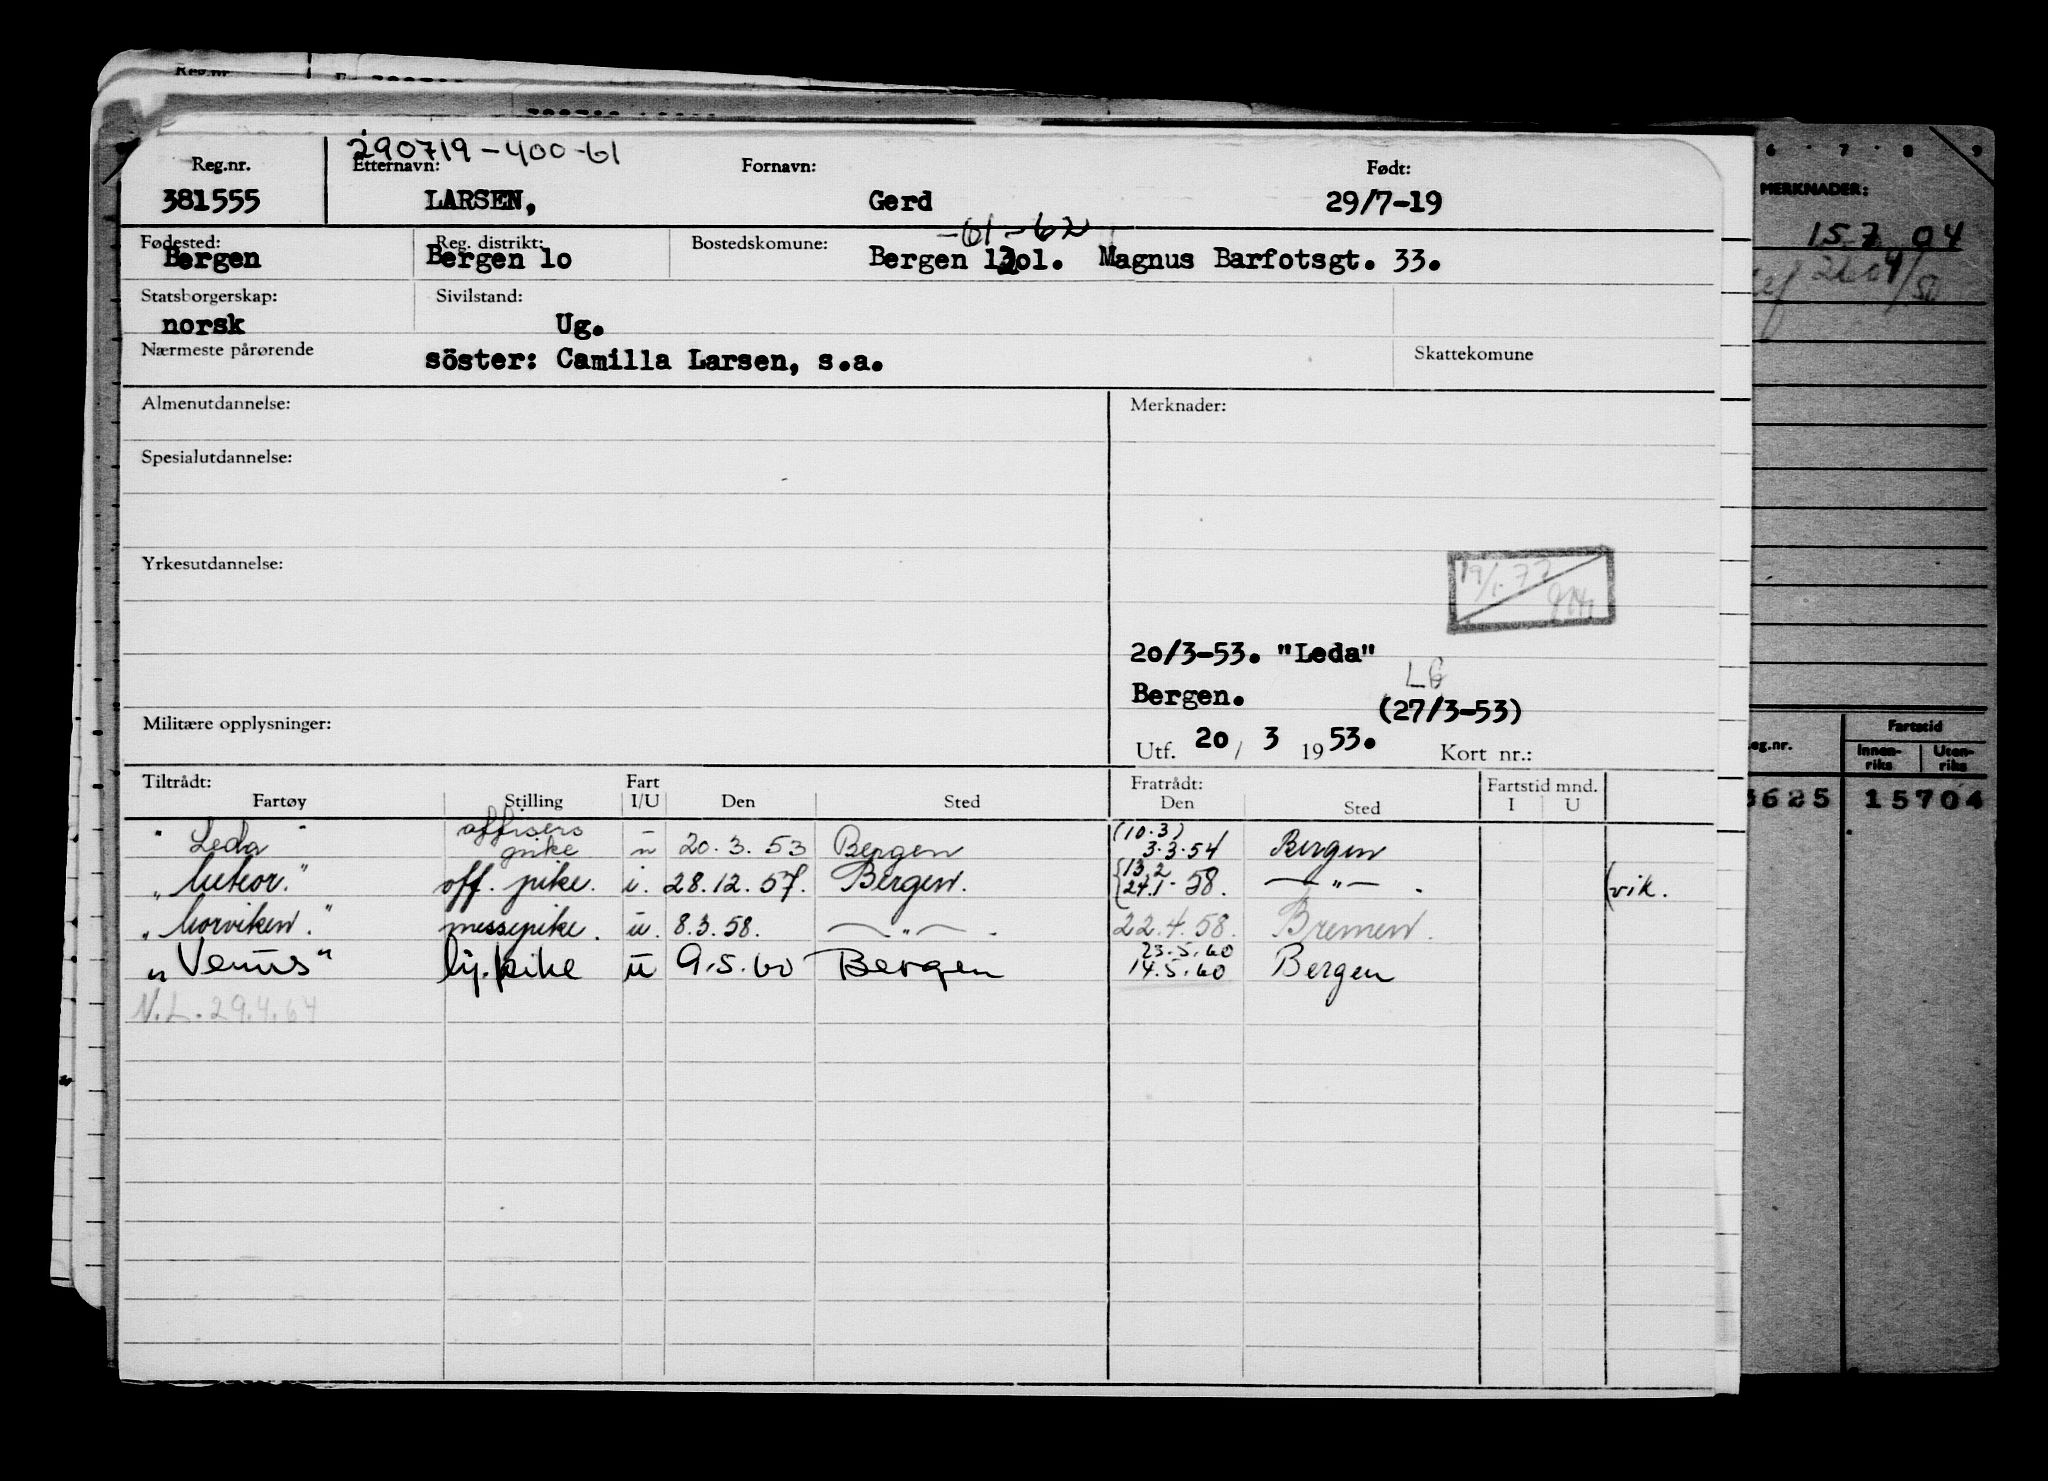 290719-400-61
Reg.nr. Etternavn: Fornavn: Født:
381555 LARSEN, Gerd 29/7-19
-61-62
Fødested: Reg. distrikt: Bostedskomune:
Bergen Bergen 10 Bergen 1301. Magnus Barfotsgt. 33.
Statsborgerskap: Sivilstand:
norsk Ug.
Nærmeste pårørende söster: Camilla Larsen, s.a. Skattekomune
Almenutdannelse: Merknader:
Spesialutdannelse:
Yrkesutdannelse:
19/1.77
20/3-53. "Leda"
LG
Bergen. (27/3-53)
Militære opplysninger:
Utf. 20 / 3 1953. Kort nr.:
Tiltrådt: Fart Fratrådt: Fartstid mnd.
Fartøy Stilling I/U Den Sted Den Sted I U
"Leda" offisers pike u 20.3.53 Bergen (10.3) 3.3.54 Bergen
"Meteor." off. pike. i. 28.12.57. Bergen. {13.2 24.1.58. —"—. (vik.
"Morviken." messepike. u. 8.3.58. —"—. 22.4.58. Bremen.
"Venus" lg.pike u 9.5.60 Bergen 23.5.60 14.5.60 Bergen
N.L. 29.4.64
6 7 8 9
MERKNADER:
15704
Fartstid
eg.nr. Innen-riks Uten-riks
3625 15704